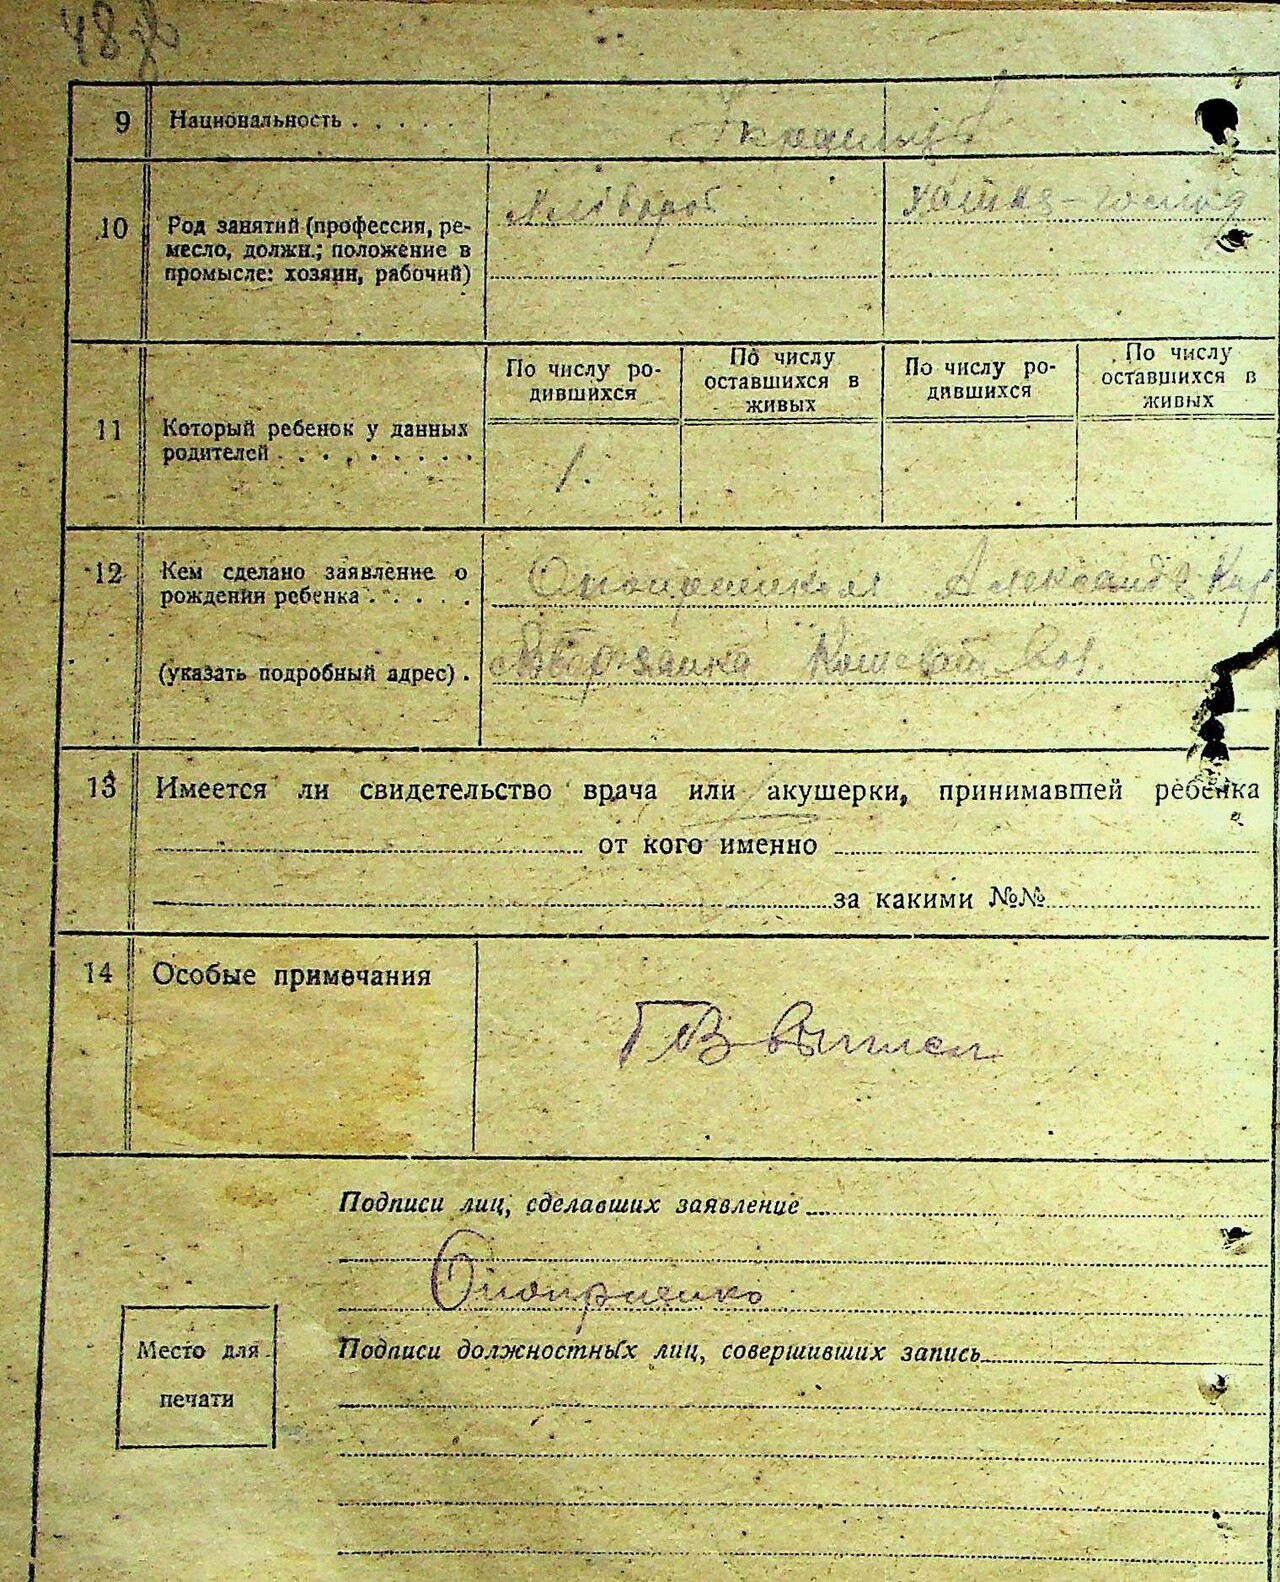 48 зв
9 Национальность . . . . .
Украинцы
10 Род занятий (профессия, ре-
месло, должн.; положение в
промысле: хозяин, рабочий)
Хлібороб
Хатня-
11 Который ребенок у данных
родителей . . . . . . . .
По числу ро-
дившихся
По числу
оставшихся в
живых
По числу ро-
дившихся
По числу
оставшихся в
живых
1.
12 Кем сделано заявление о
рождении ребенка . . . . .
Александр
(указать подробный адрес) .
13 Имеется ли свидетельство врача или акушерки, принимавшей ребенка
от кого именно
за какими №№
14 Особые примечания
Подписи лиц, сделавших заявление
Оноприенко
Место для
печати
Подписи должностных лиц, совершивших запись